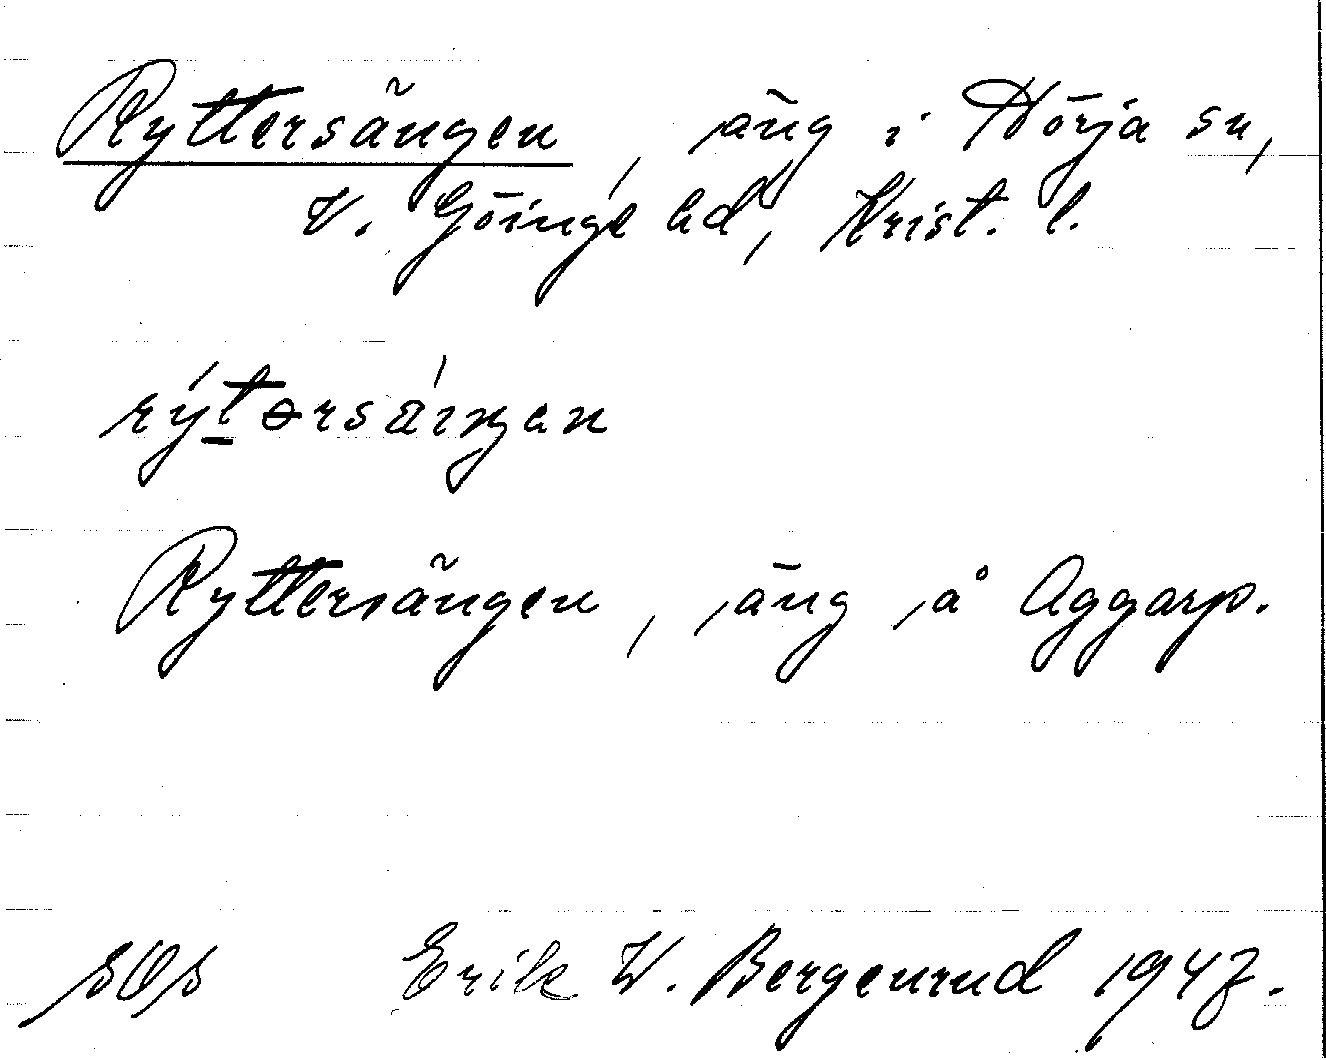 Ryttersängen, äng i Hörja sn,
V. Göinge hd, Krist. l.
Ryttersängen, äng å Aggarp.
sOs Erik W. Bergenrud 1947.